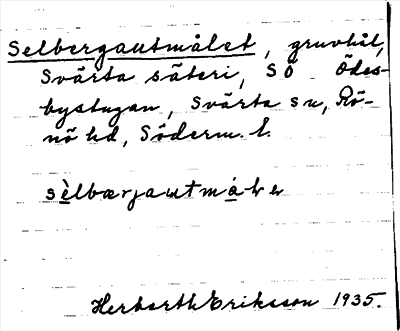 Selbergautmålet, gruvhål,
Svärta säteri, SÖ Ödes-
bystugan, Svärta sn, Rö-
nö hd, Söderm. l.
Herbert Eriksson 1935.